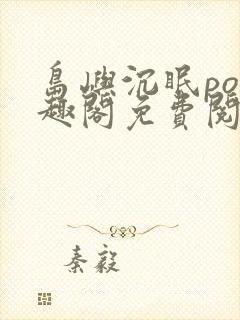 島嶼沉眠po
趣閣免費閱
秦毅